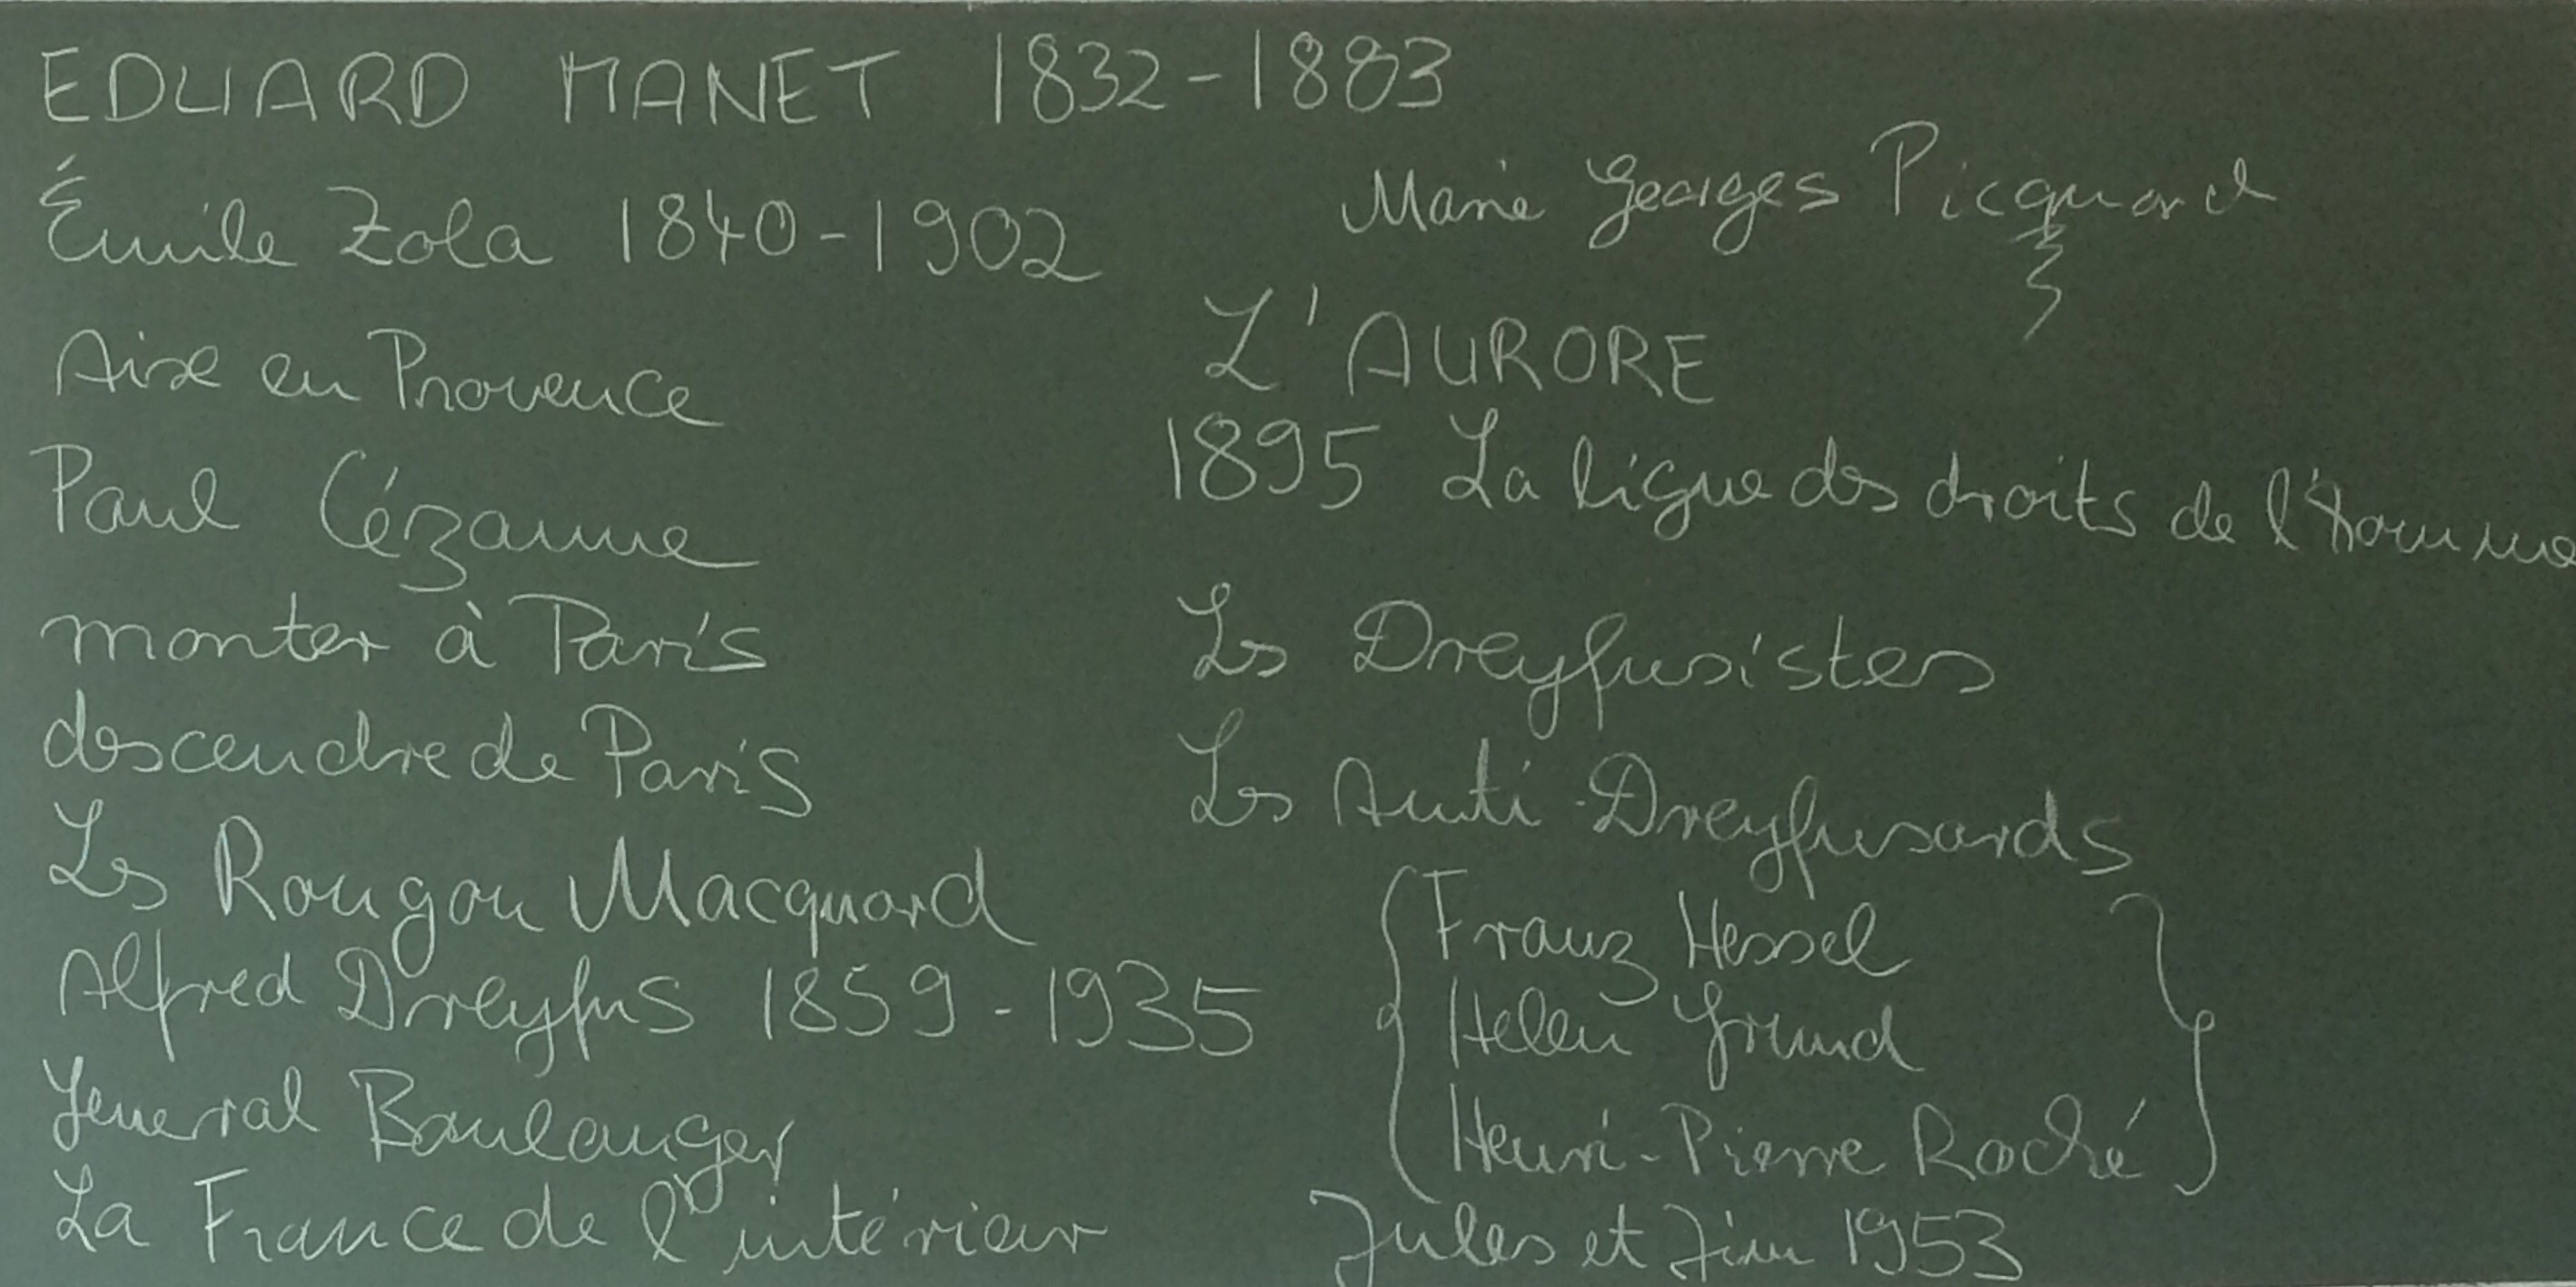 EDUARD MANET 1832-1883
Émile Zola 1840-1902
Aixe en Provence
Paul Cézanne
monter à Paris
descendre de Paris
Les Rougon Macquard
Alfred Dreyfus 1859-1935
General Boulanger
La France de l'intérieur
Marie Georges Picquard
L'AURORE
1895 La ligue des droits de l'homme
Les Dreyfusistes
Les Anti-Dreyfusards
Franz Hessel
Helen Grund
Henri-Pierre Roché
Jules et Jim 1953